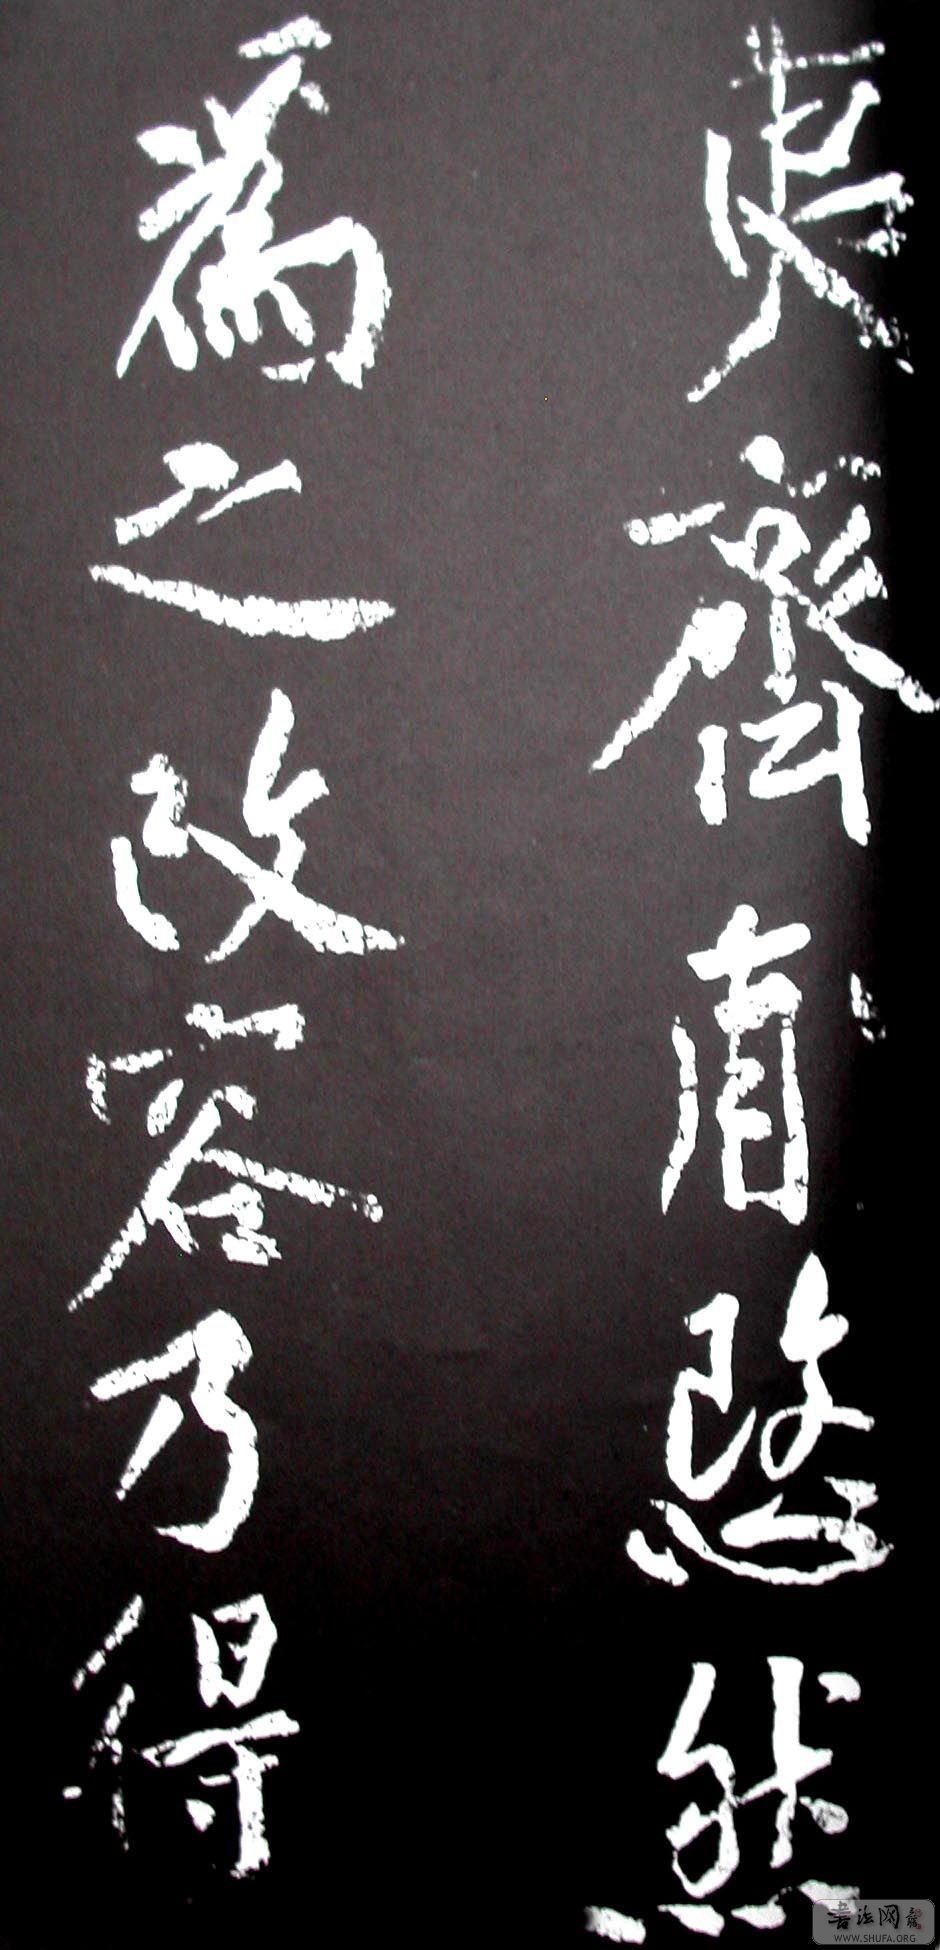 夷齊有愍然
為之改容乃得
書法网
WWW.SHUFA.ORG